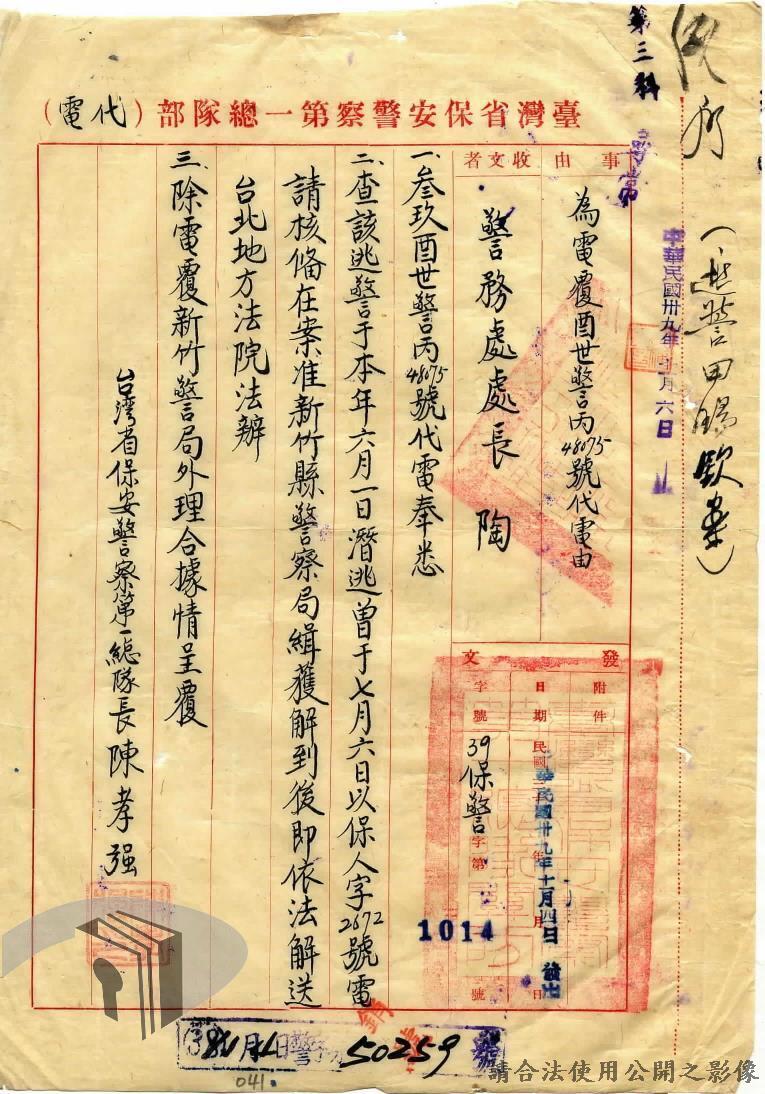 第三科
(逃警田賜欽案)
中華民國卅九年十一月六日
臺灣省保安警察第一總隊部(代電)
事由
為電覆酉世警丙48075號代電由
收文者
警務處處長 陶
發文
附件
日期
民國 年 月 日
中華民國卅九年十一月四日 發出
字號
39保警字第1014號
一、參玖酉世警丙48075號代電奉悉
二、查該逃警于本年六月一日潛逃曾于七月六日以保人字2672號電
請核俻在案准新竹縣警察局緝獲解到後即依法解送
台北地方法院法辦
三、除電覆新竹警局外理合據情呈覆
台灣省保安警察第一總隊長陳孝强
50259
041
請合法使用公開之影像